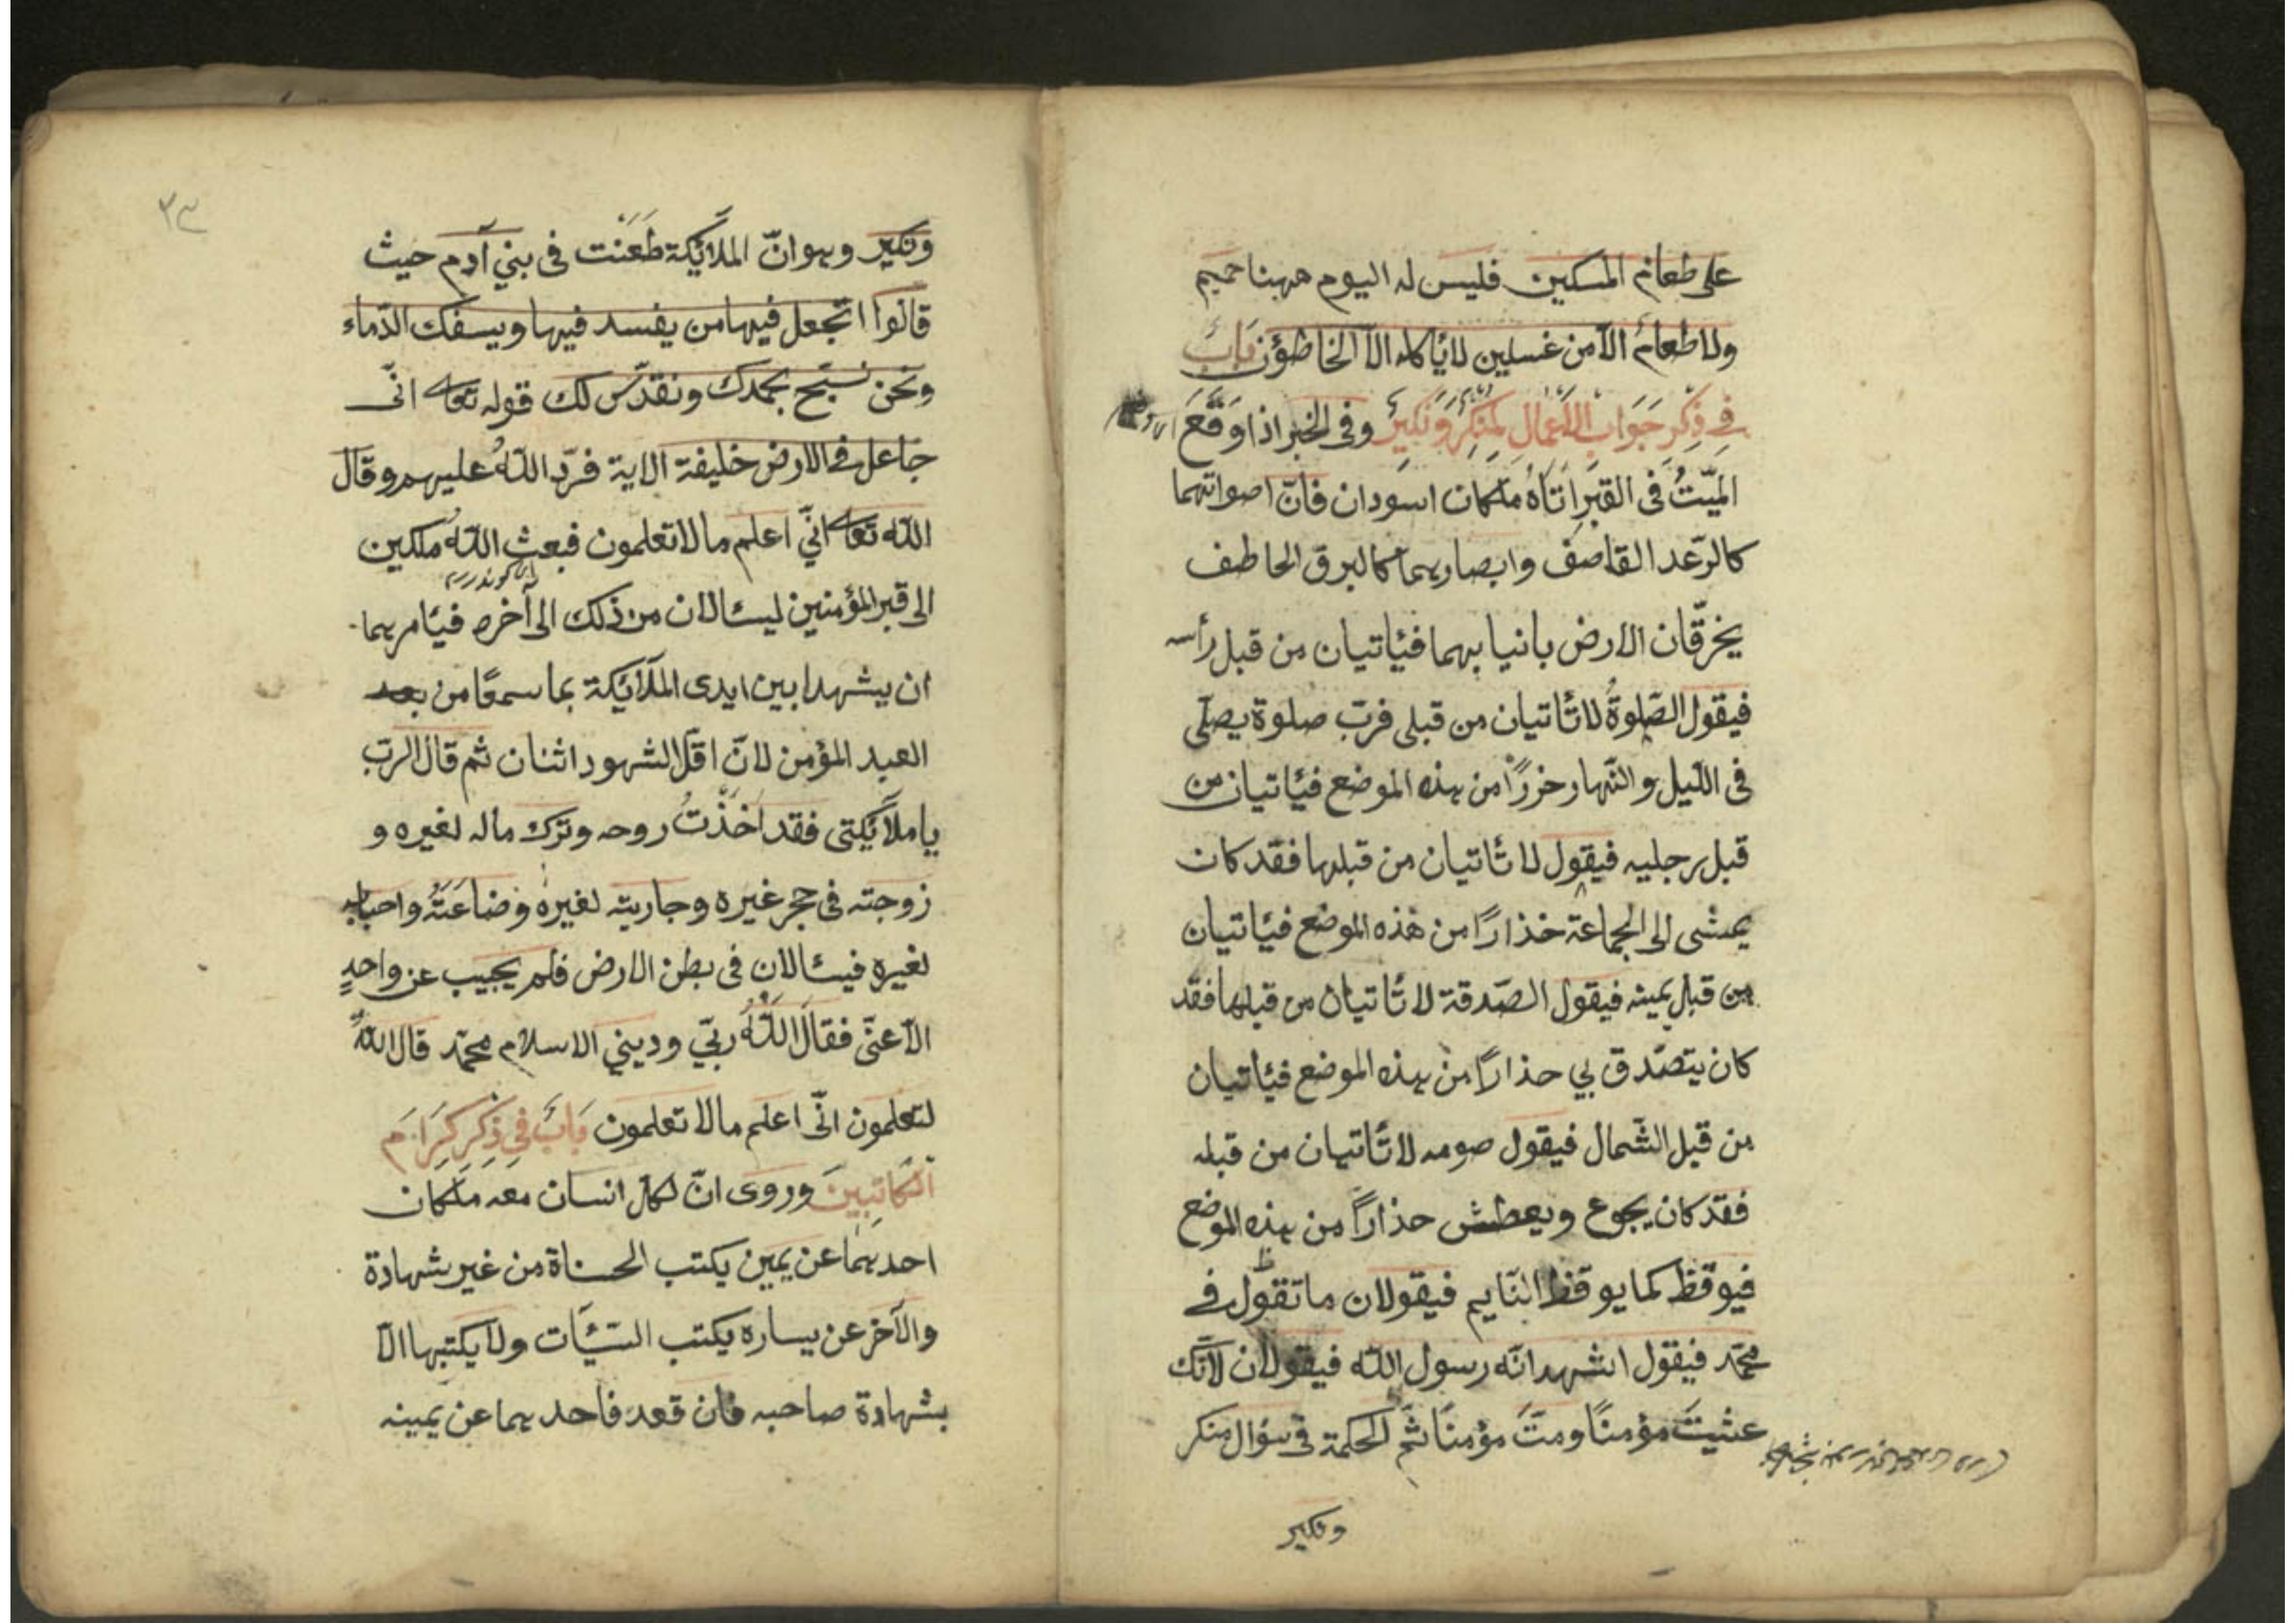 على طعام المسكين فليس له اليوم ههنا حميم
ولا طعام الا من غسلين لا يأكله الا الخاطؤن باب
في ذكر جواب الاعمال لمنكر ونكير وفى الخبر اذا وقع
الميّت فى القبر اتاه ملكان اسودان فانّ اصواتهما
كالرّعد القاصف وابصارهما كالبرق الخاطف
يخرّقان الارض بانيابهما فيأتيان من قبل رأسه
فيقول الصّلوة لا تأتيان من قبلى فربّ صلوة يصلّى
فى اللّيل والنّهار حزرًا من هذه الموضع فيأتيان من
قبل رجليه فيقول لا تأتيان من قبلها فقد كان
يمشى الى الجماعة خذارًا من هذه الموضع فيأتيان
من قبل يمينه فيقول الصّدقة لا تأتيان من قبلها فقد
كان يتصّدق بي حذارًا من هذه الموضع فيأتيان
من قبل الشّمال فيقول صومه لا تأتيان من قبله
فقد كان يجوع ويعطش حذارًا من هذه الموضع
فيوقظ كما يوقظ النّايم فيقولان ما تقول في
محمّد فيقول اشهد انّه رسول اللّه فيقولان لانّك
عشيت مؤمنًا ومتّ مؤمنًا ثمّ الحكمة فى سؤال منكر
ونكير
٣٢
ونكير وهو انّ الملائكة طعنت فى بني آدم حيث
قالوا اتجعل فيها من يفسد فيها ويسفك الدّماء
ونحن نسبّح بحمدك ونقدّس لك قوله تعالى انّى
جاعل فى الارض خليفة الاية فردّ اللّه عليهم وقال
اللّه تعالى انّي اعلم ما لا تعلمون فبعث اللّه ملكين
الى قبر المؤمنين ليسئالان من ذلك الى آخره فيأمرهما
ان يشهدا بين ايدى الملائكة بما سمعًا من بعد
العبد المؤمن لانّ اقلّ الشهود اثنان ثم قال الربّ
يا ملائكتى فقد اخذت روحه وترك ماله لغيره و
زوجته فى حجر غيره وجاريته لغيره وضاعته واحبابه
لغيره فيسئالان فى بطن الارض فلم يجيب عن واحدٍ
الّا عنّى فقال اللّه ربّي وديني الاسلام محمّد قال اللّه
لتعلمون انّى اعلم ما لا تعلمون باب فى ذكر كرام
الكاتبين وروى انّ لكل انسان معه ملكان
احدهما عن يمين يكتب الحسناة من غير شهادة
والآخر عن يساره يكتب السّيّئات ولا يكتبها الّا
بشهادة صاحبه فان قعد فاحدهما عن يمينه